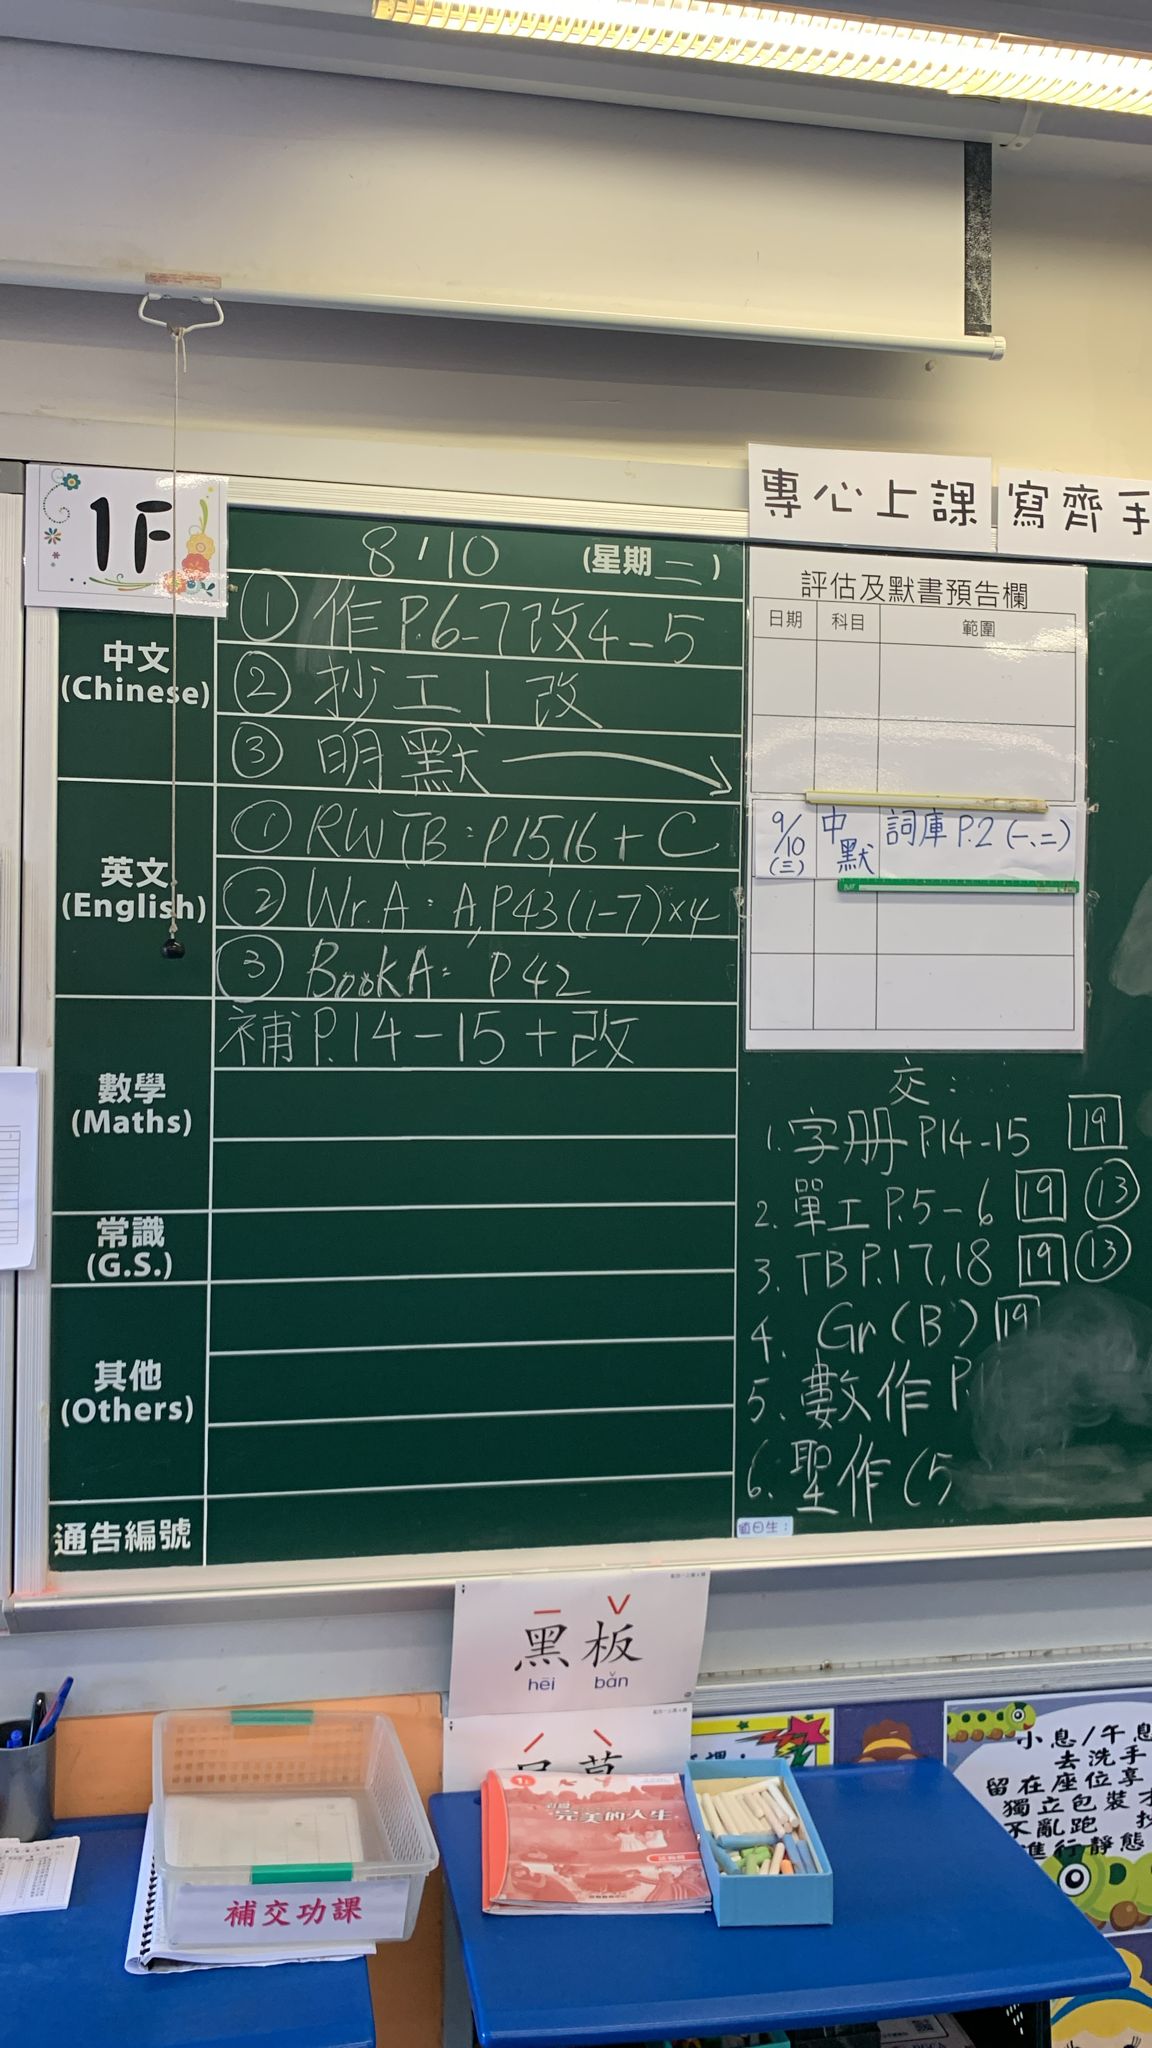 1F
8/10 (星期二)
中文
(Chinese)
① 作 P.6-7 改 4-5
② 抄工 1 改
③ 明默
英文
(English)
① RWTB: P15,16 + C
② Wr.A: A,P43(1-7)×4
③ BookA: P42
數學
(Maths)
補 P.14-15 + 改
常識
(G.S.)
其他
(Others)
通告編號
專心上課
寫齊手
評估及默書預告欄
日期 科目 範圍
9/10 (三) 中默 詞庫 P.2 (一、二)
交:
1. 字册 P.14-15 19
2. 單工 P.5-6 19 13
3. TB P.17,18 19 13
4. Gr (B) 19
5. 數作 P.
6. 聖作 (5
值日生:
黑板
hēi bǎn
完美的人生
補交功課
小息/午息
去洗手
留在座位享
獨立包裝
不亂跑
進行靜態